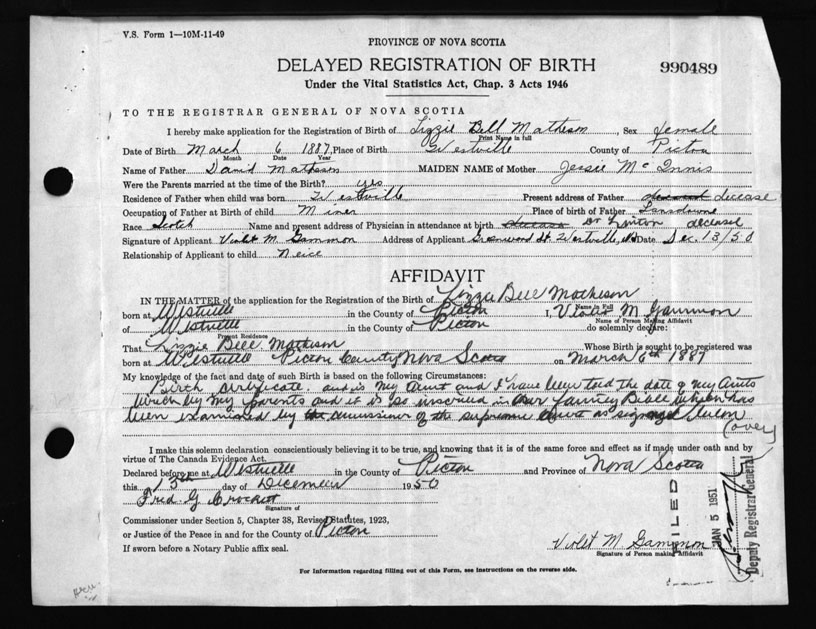 V.S. Form 1—10M-11-49
PROVINCE OF NOVA SCOTIA
DELAYED REGISTRATION OF BIRTH
990489
Under the Vital Statistics Act, Chap. 3 Acts 1946
TO THE REGISTRAR GENERAL OF NOVA SCOTIA
I hereby make application for the Registration of Birth of Lizzie Bell Matheson, Sex female
Print Name in full
Date of Birth March 6 1887, Place of Birth Westville County of Pictou
Month Date Year
Name of Father David Matheson MAIDEN NAME of Mother Jessie McInnis
Were the Parents married at the time of the Birth? yes
Residence of Father when child was born Westville Present address of Father deceased decease
Occupation of Father at Birth of child Miner Place of birth of Father Lansdowne
Race Scotch Name and present address of Physician in attendance at birth Dr decease
Signature of Applicant Violet M. Gammon Address of Applicant Greenwood St. Westville, NS Date Dec. 13/50
Relationship of Applicant to child Neice
AFFIDAVIT
IN THE MATTER of the application for the Registration of the Birth of Lizzie Bell Matheson
Name in Full
born at Westville in the County of Pictou I, Violet M Gammon
Name of Person Making Affidavit
of Westville in the County of Pictou do solemnly declare:
Present Residence
That Lizzie Bell Matheson Whose Birth is sought to be registered was
born at Westville Pictou County Nova Scotia on March 6th 1887
My knowledge of the fact and date of such Birth is based on the following Circumstances:
Birth certificate. and is my Aunt and I have been told the date of my Aunts
birth by my parents and it is so inscribed in our family Bible which has
been examined by the commissioner of the supreme as signed below
(over)
I make this solemn declaration conscientiously believing it to be true, and knowing that it is of the same force and effect as if made under oath and by
virtue of The Canada Evidence Act.
Declared before me at Westville in the County of Pictou and Province of Nova Scotia
this 13th day of December 1950
Fred. G Crockett
Signature of
Commissioner under Section 5, Chapter 38, Revised Statutes, 1923,
or Justice of the Peace in and for the County of Pictou
If sworn before a Notary Public affix seal.
Violet M Gammon
Signature of Person making Affidavit
FILED
JAN 5 1951
Deputy Registrar General
For information regarding filling out of this Form, see instructions on the reverse side.